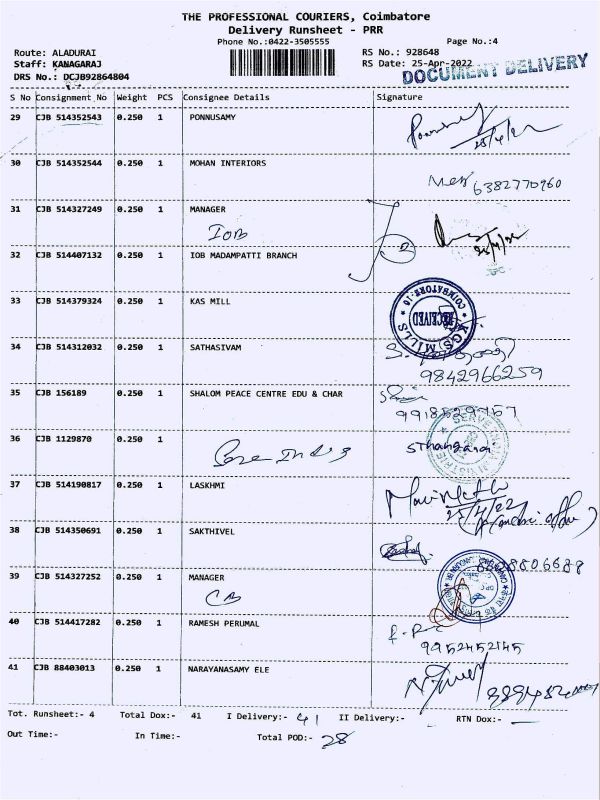 THE PROFESSIONAL COURIERS, Coimbatore
Delivery Runsheet - PRR
Phone No.:0422-3505555 Page No.:4
Route: ALADURAI RS No.: 928648
Staff: KANAGARAJ RS Date: 25-Apr-2022
DRS No.: DCJB92864804 DOCUMENT DELIVERY
S No Consignment No Weight PCS Consignee Details Signature
29 CJB 514352543 0.250 1 PONNUSAMY
25/4/22
30 CJB 514352544 0.250 1 MOHAN INTERIORS
6382770960
31 CJB 514327249 0.250 1 MANAGER
IOB
32 CJB 514407132 0.250 1 IOB MADAMPATTI BRANCH
33 CJB 514379324 0.250 1 KAS MILL
KGS MILLS COIMBATORE-10 RECEIVED
34 CJB 514312032 0.250 1 SATHASIVAM
9842966259
35 CJB 156189 0.250 1 SHALOM PEACE CENTRE EDU & CHAR
36 CJB 1129870 0.250 1
37 CJB 514190817 0.250 1 LASKHMI
25/4/22
38 CJB 514350691 0.250 1 SAKTHIVEL
39 CJB 514327252 0.250 1 MANAGER
CB
40 CJB 514417282 0.250 1 RAMESH PERUMAL
9952452145
41 CJB 88403013 0.250 1 NARAYANASAMY ELE
Tot. Runsheet:- 4 Total Dox:- 41 I Delivery:- 41 II Delivery:- RTN Dox:- —
Out Time:- In Time:- Total POD:- 28